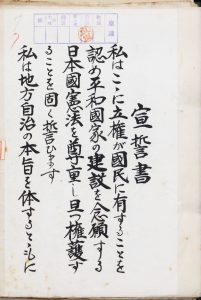 宣誓書
私はこゝに主権が國民に有することを
認め平和國家の建設を念願する
日本國憲法を尊重し且つ擁護す
ることを固く誓ひます
私は地方自治の本旨を体するともに